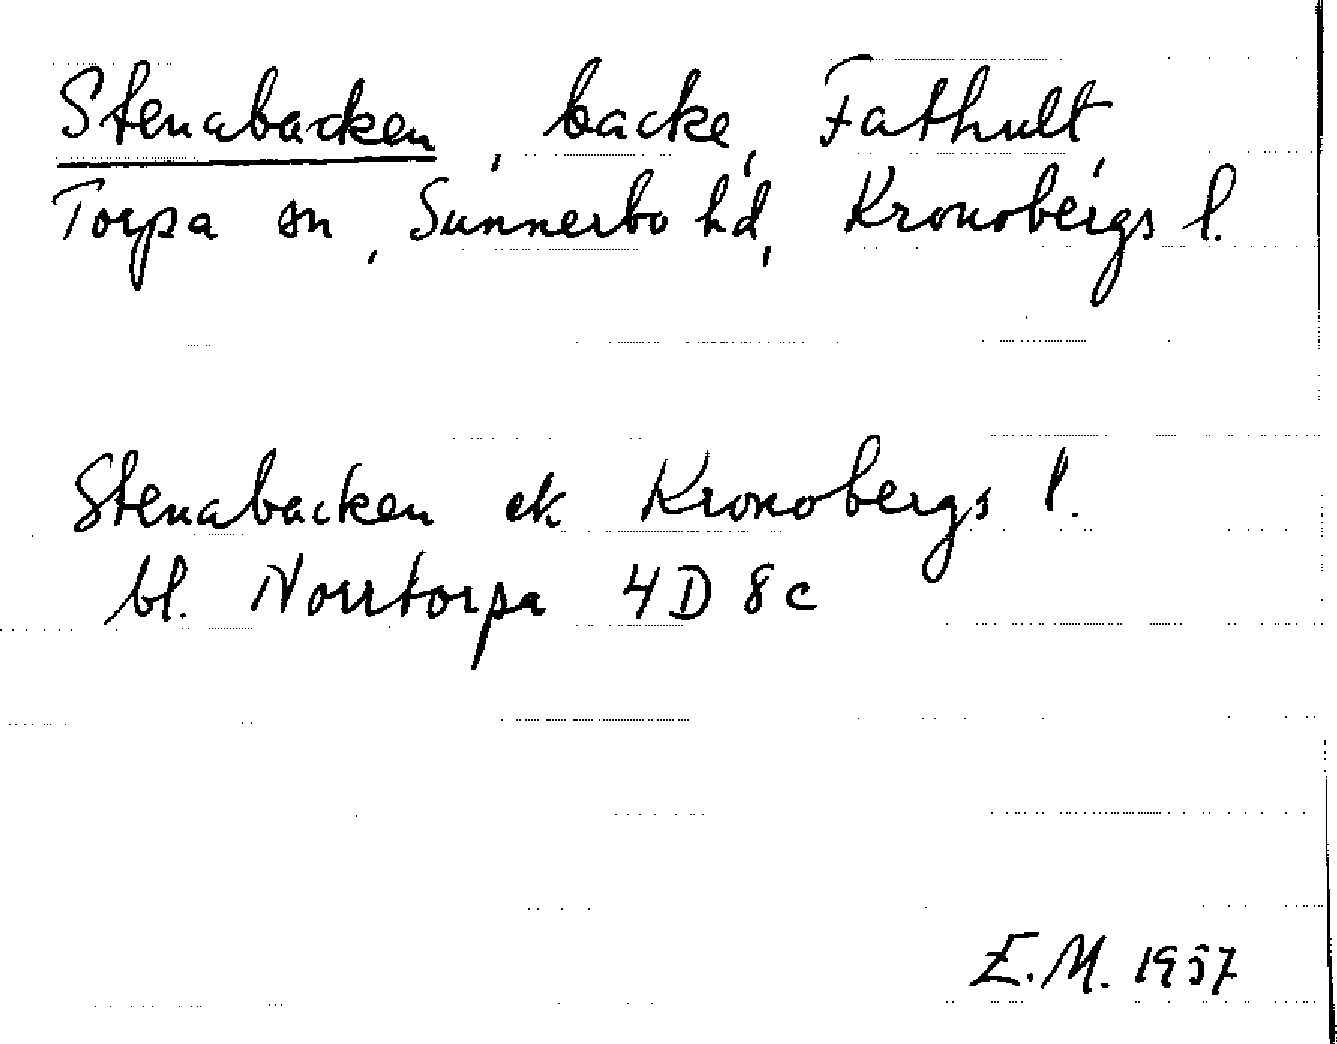 Stenabacken, backe, Fathult,
Torpa sn, Sunnerbo hd, Kronobergs l.
Stenabacken ek Kronobergs l.
bl. Norrtorpa 4D 8c
E.M. 1957